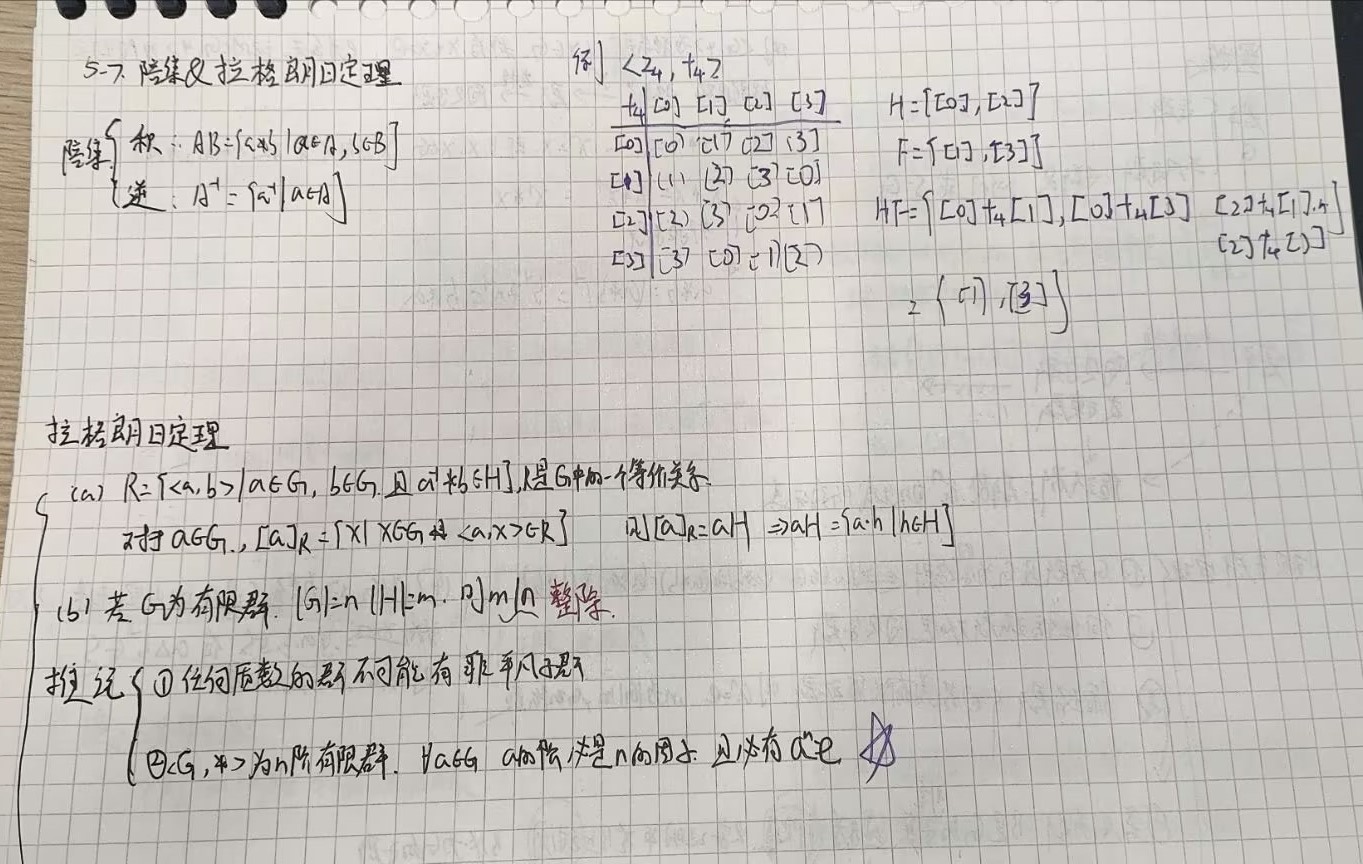 5-7. 陪集&拉格朗日定理
陪集 { 积: AB={a*b|a∈A, b∈B}
逆: A⁻¹={a⁻¹|a∈A}
例 <Z₄, +₄>
+₄ [0] [1] [2] [3]
[0] [0] [1] [2] [3]
[1] [1] [2] [3] [0]
[2] [2] [3] [0] [1]
[3] [3] [0] [1] [2]
H={[0],[2]}
F={[1],[3]}
HF={[0]+₄[1],[0]+₄[3] [2]+₄[1],
[2]+₄[3]}
={[1],[3]}
拉格朗日定理
(a) R={<a,b>|a∈G, b∈G, 且a⁻¹*b∈H},R是G中的一个等价关系.
对于a∈G, [a]R={x|x∈G <a,x>∈R} 则[a]R=aH ⇒aH={a·h|h∈H}
(b) 若G为有限群. |G|=n |H|=m. 则m|n 整除.
推论 { ①任何质数的群不可能有非平凡子群
②<G,*>为n阶有限群. ∀a∈G a的阶必是n的因子. 且必有aⁿ=e